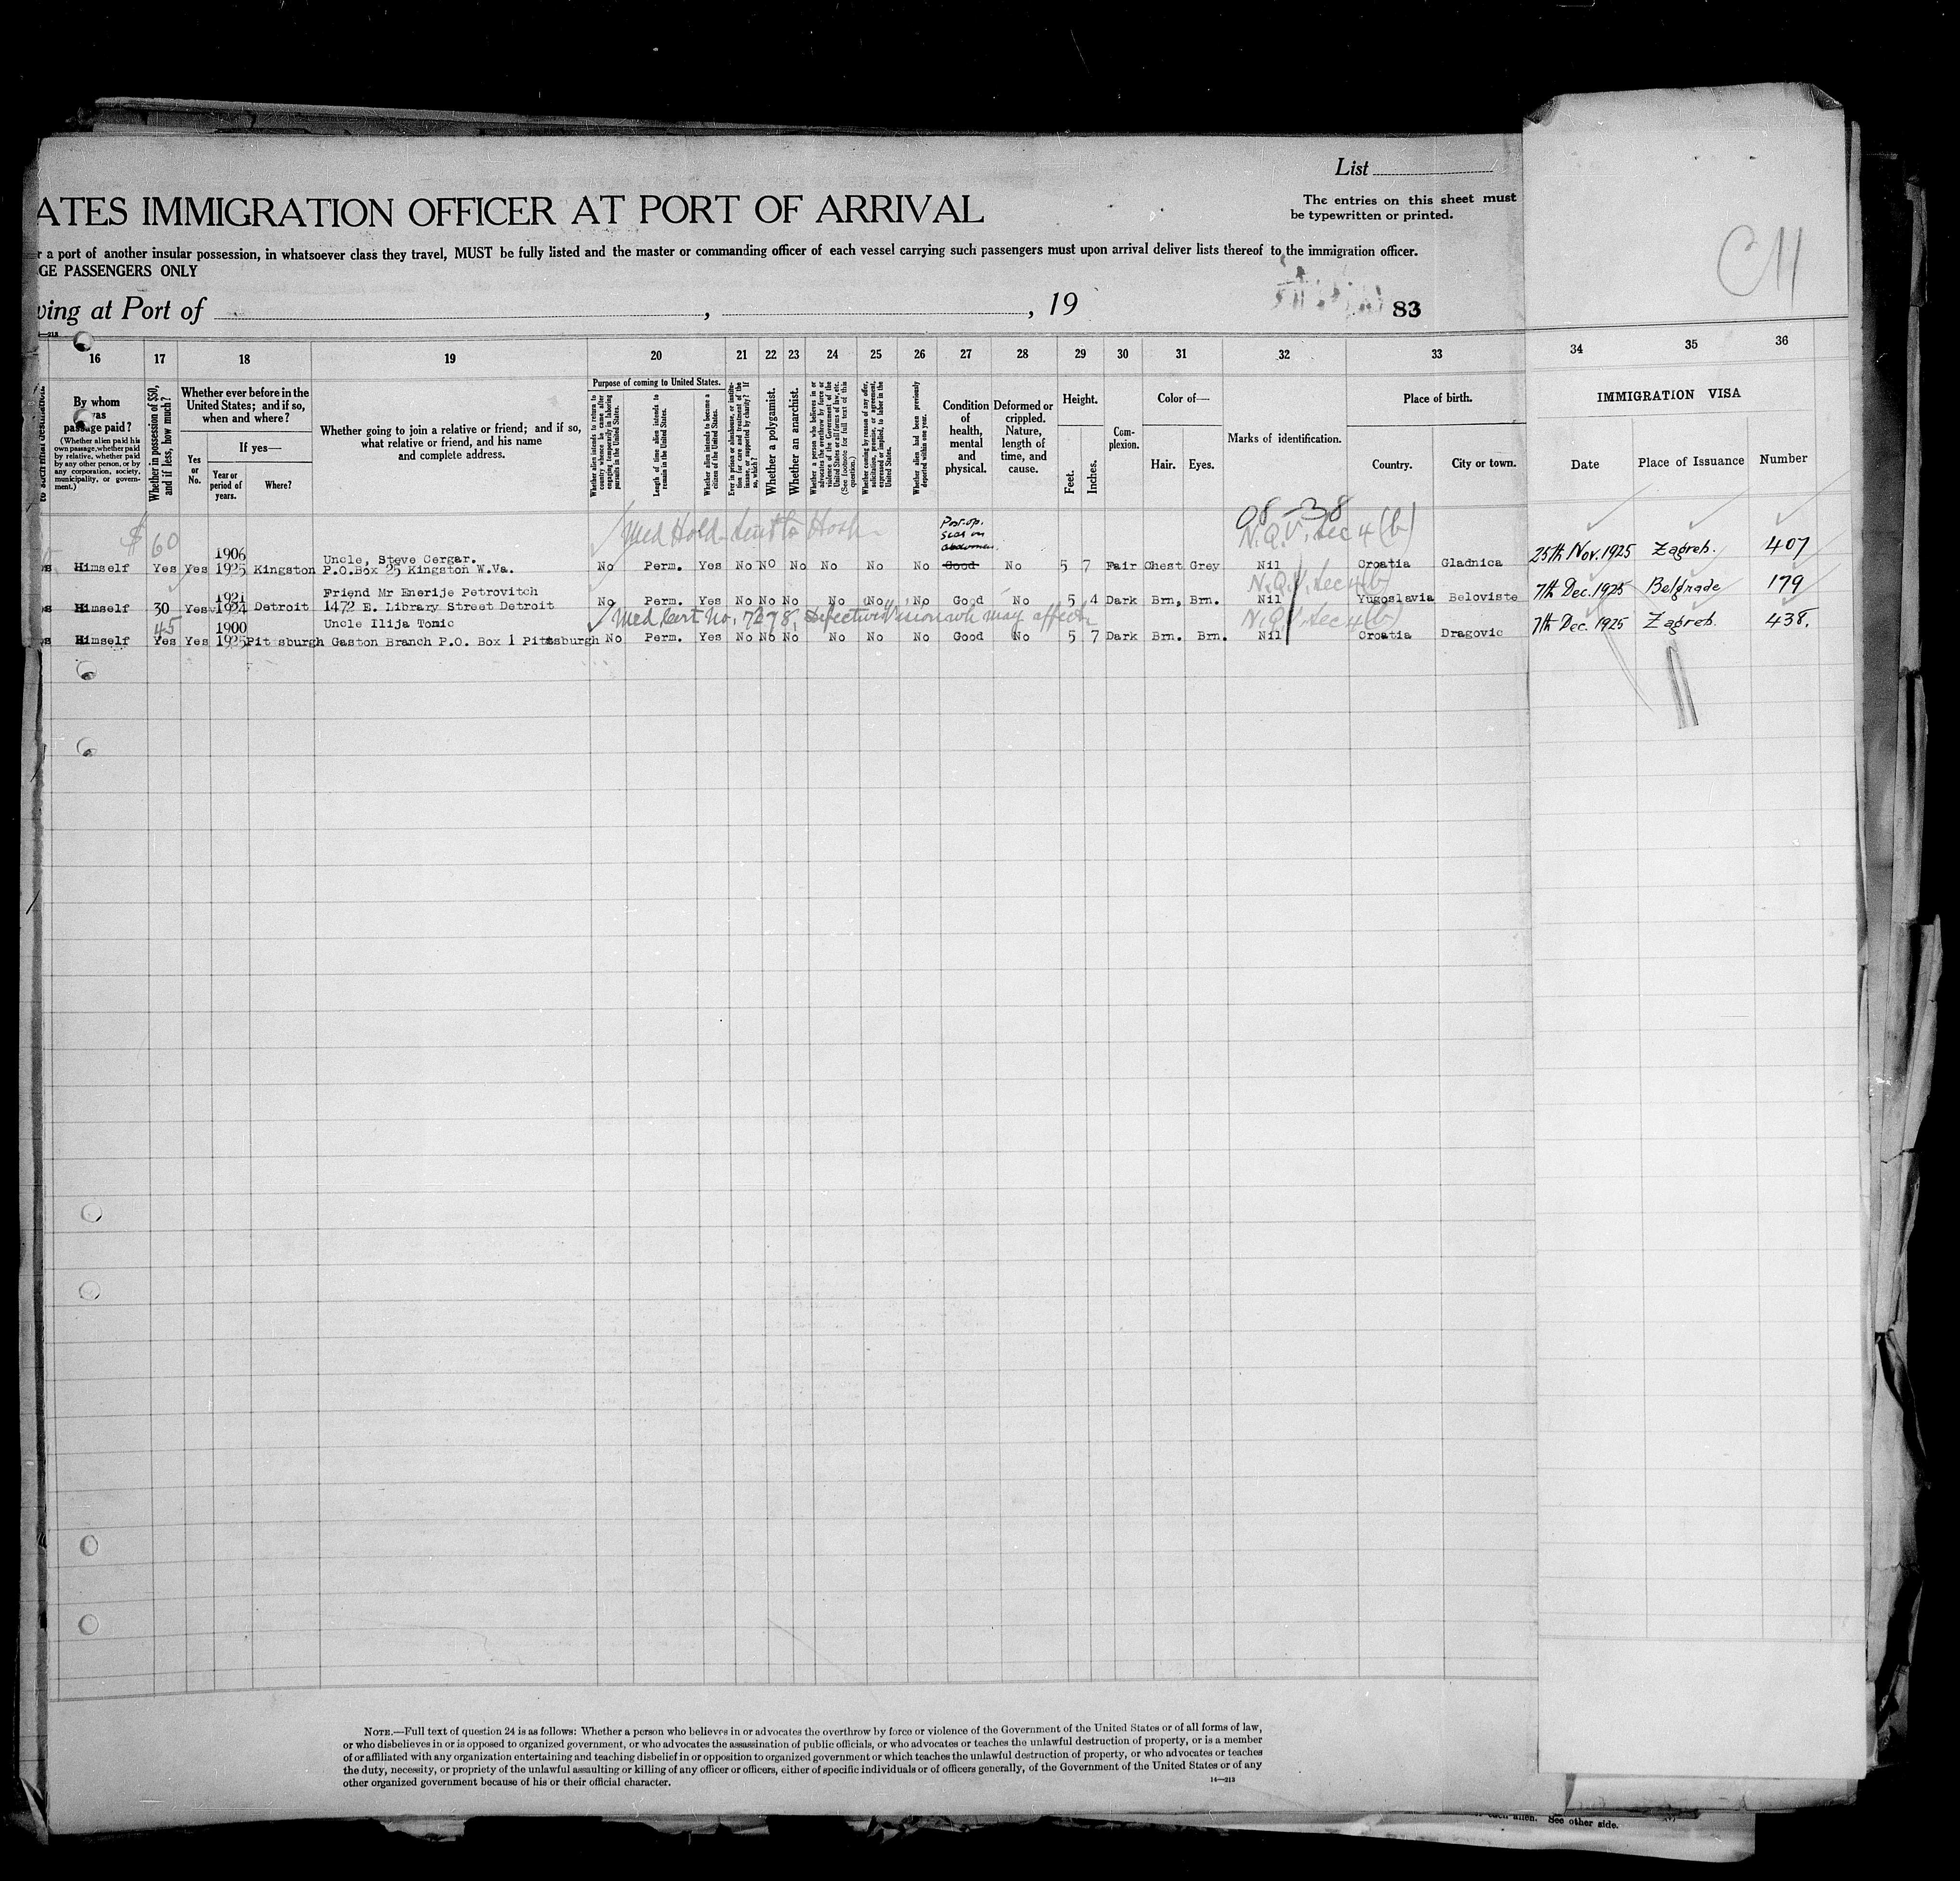 List
The entries on this sheet must
be typewritten or printed.
ATES IMMIGRATION OFFICER AT PORT OF ARRIVAL
r a port of another insular possession, in whatsoever class they travel, MUST be fully listed and the master or commanding officer of each vessel carrying such passengers must upon arrival deliver lists thereof to the immigration officer.
GE PASSENGERS ONLY
ving at Port of , , 19
83
16 17 18 19 20 21 22 23 24 25 26 27 28 29 30 31 32 33 34 35 36
By whom was passage paid?
(Whether alien paid his own passage, whether paid by relative, whether paid by any other person, or by any corporation, society, municipality, or government.)
Whether in possession of $50, and if less, how much?
Whether ever before in the United States; and if so, when and where?
Yes or No.
If yes—
Year or period of years.
Where?
Whether going to join a relative or friend; and if so, what relative or friend, and his name and complete address.
Purpose of coming to United States.
Whether alien intends to return to country whence he came after engaging temporarily in laboring pursuits in the United States.
Length of time alien intends to remain in the United States.
Whether alien intends to become a citizen of the United States.
Ever in prison or almshouse, or institution for care and treatment of the insane, or supported by charity? If so, which?
Whether a polygamist.
Whether an anarchist.
Whether a person who believes in or advocates the overthrow by force or violence of the Government of the United States or all forms of law, etc. (See footnote for full text of this question.)
Whether coming by reason of any offer, solicitation, promise, or agreement, expressed or implied, to labor in the United States.
Whether alien had been previously deported within one year.
Condition of health, mental and physical.
Deformed or crippled. Nature, length of time, and cause.
Height.
Feet. Inches.
Complexion.
Color of—
Hair. Eyes.
Marks of identification.
Place of birth.
Country. City or town.
IMMIGRATION VISA
Date Place of Issuance Number
CM
$60 Med Hold sent to Hosp Post-op. scar on abdomen. 08-38
N.Q.V. Sec 4 (b)
1906 Uncle, Steve Cergar.
Himself Yes Yes 1925 Kingston P.O.Box 25 Kingston W.Va. No Perm. Yes No No No No No No Good No 5 7 Fair Chest Grey Nil Croatia Gladnica 25th Nov. 1925 Zagreb. 407
1921 Friend Mr Enerije Petrovitch N.Q.V. Sec 4 (b)
Himself 30 Yes 1924 Detroit 1472 E. Library Street Detroit No Perm. Yes No No No No No No Good No 5 4 Dark Brn, Brn. Nil Yugoslavia Beloviste 7th Dec. 1925 Belgrade 179
45 1900 Uncle Ilija Tomic Med Cert No. 7278, Defective Vision wh may affect N.Q.V. Sec 4 (b)
Himself Yes Yes 1925 Pittsburgh Gaston Branch P.O. Box 1 Pittsburgh No Perm. Yes No No No No No No Good No 5 7 Dark Brn. Brn. Nil Croatia Dragovic 7th Dec. 1925 Zagreb. 438.
NOTE.—Full text of question 24 is as follows: Whether a person who believes in or advocates the overthrow by force or violence of the Government of the United States or of all forms of law,
or who disbelieves in or is opposed to organized government, or who advocates the assassination of public officials, or who advocates or teaches the unlawful destruction of property, or is a member
of or affiliated with any organization entertaining and teaching disbelief in or opposition to organized government or which teaches the unlawful destruction of property, or who advocates or teaches
the duty, necessity, or propriety of the unlawful assaulting or killing of any officer or officers, either of specific individuals or of officers generally, of the Government of the United States or of any
other organized government because of his or their official character.
14—213
each alien. See other side.